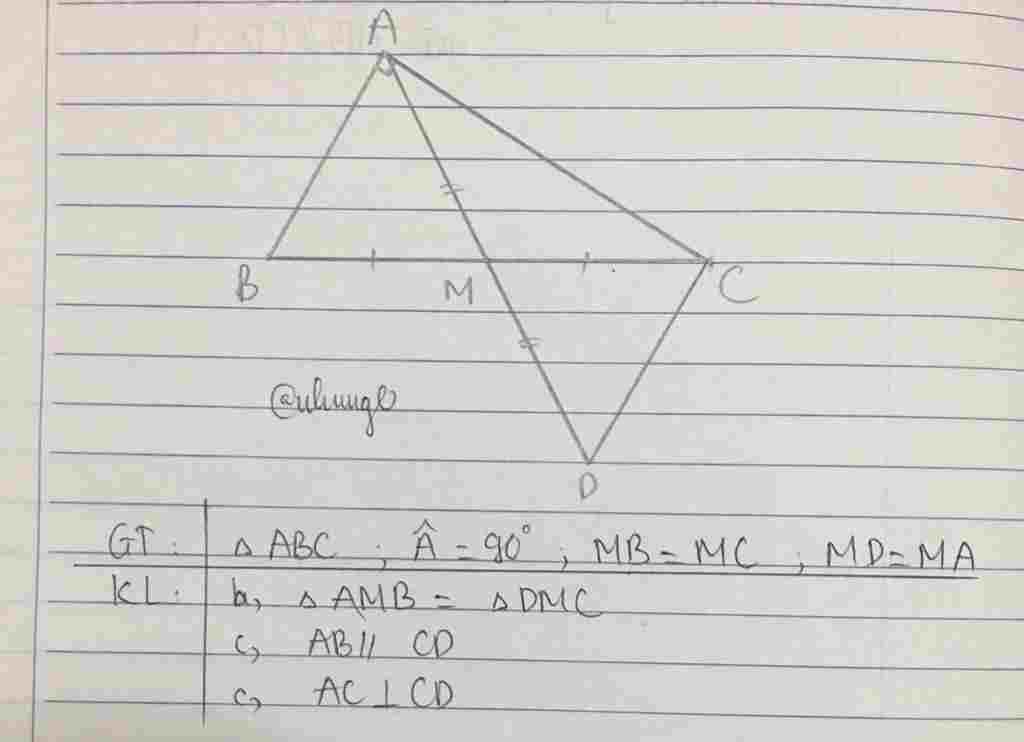 A
B M C
@nhungl
D
GT: Δ ABC ; Â = 90° ; MB = MC ; MD = MA
KL: b, Δ AMB = Δ DMC
c, AB // CD
c, AC ⊥ CD